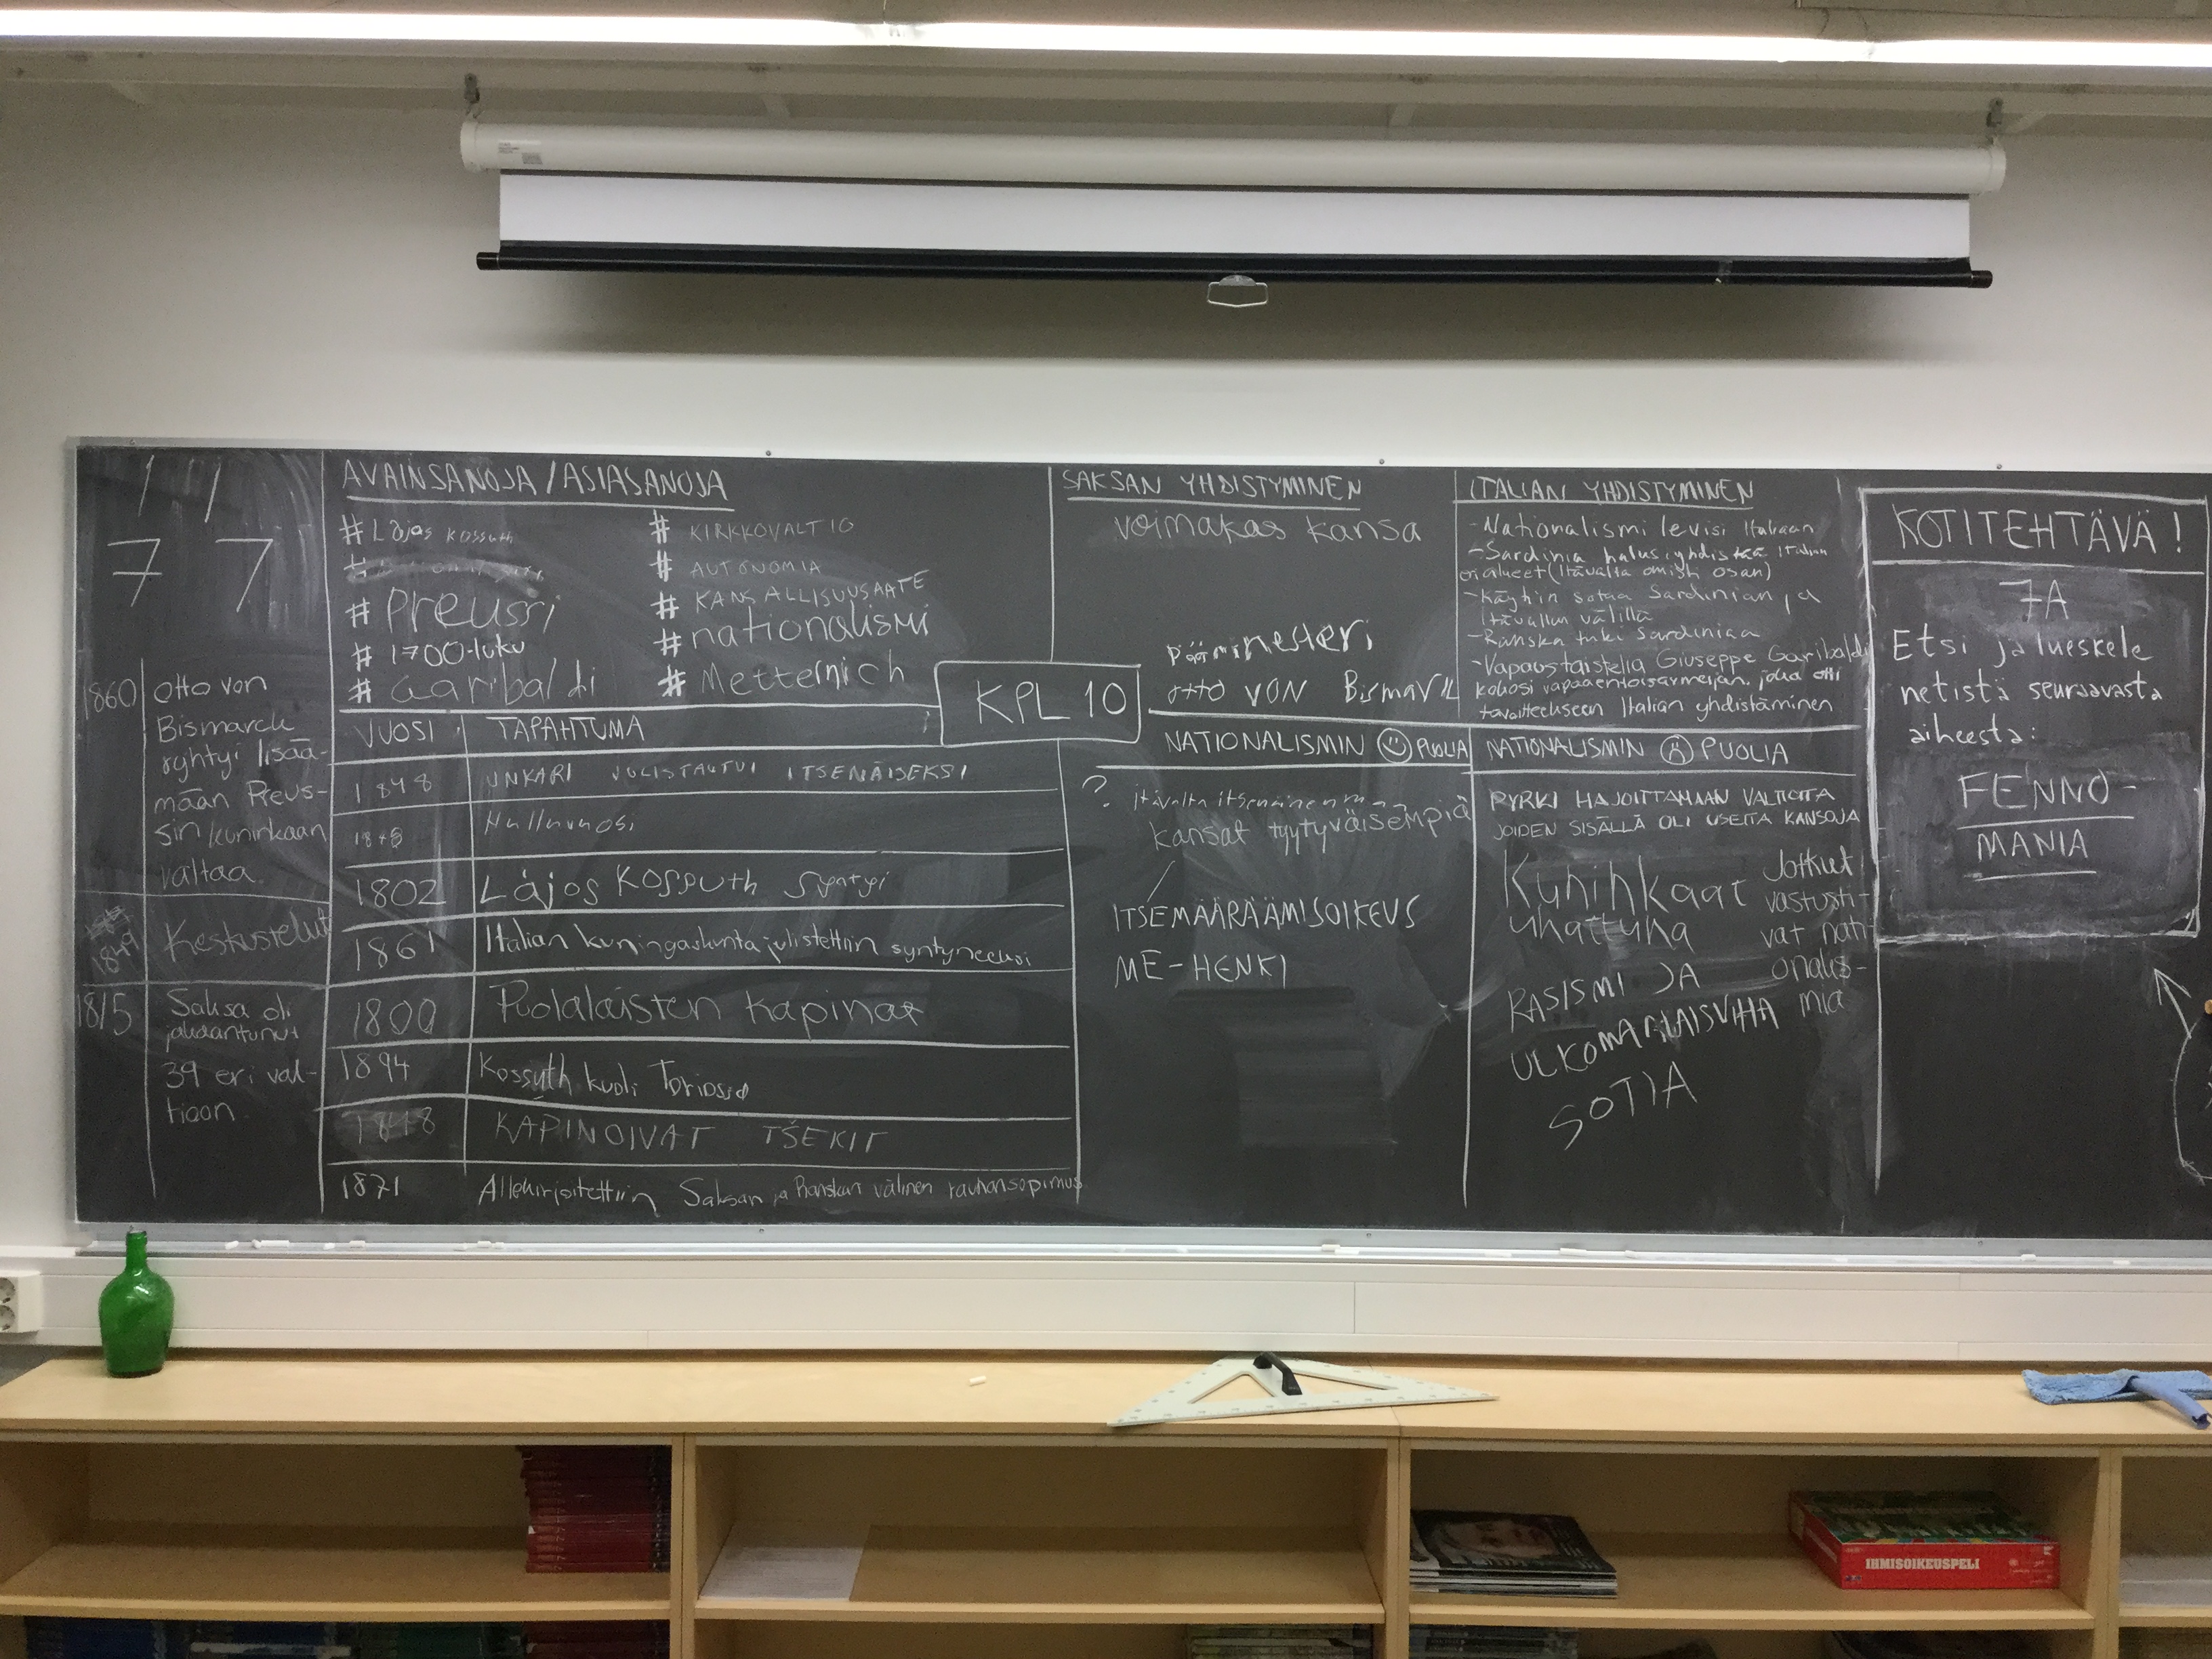 7 7
1860 Otto von
Bismarck
ryhtyi lisää-
mään Preus-
sin kuninkaan
valtaa.
Keskustelut
1815 Saksa oli
jakaantunut
39 eri val-
tioon.
AVAINSANOJA / ASIASANOJA
# Lájos Kossuth
# Preussi
# 1700-luku
# Garibaldi
# KIRKKOVALTIO
# AUTONOMIA
# KANSALLISUUSAATE
# nationalismi
# Metternich
KPL 10
VUOSI TAPAHTUMA
1848 UNKARI JULISTAUTUI ITSENÄISEKSI
1848 Hulluvuosi
1802 Lájos Kossuth syntyi
1861 Italian kuningaskunta julistettiin syntyneeksi
1800 Puolalaisten kapinat
1894 Kossuth kuoli Torinossa
1848 KAPINOIVAT TŠEKIT
1871 Allekirjoitettiin Saksan ja Ranskan välinen rauhansopimus
SAKSAN YHDISTYMINEN
voimakas kansa
pääministeri
Otto VON Bismarck
ITALIAN YHDISTYMINEN
-Nationalismi levisi Italiaan
-Sardinia halusi yhdistää Italian
eri alueet (Itävalta omisti osan)
-Käytiin sotaa Sardinian ja
Itävallan välillä
-Ranska tuki Sardiniaa
-Vapaustaistelia Giuseppe Garibaldi
kokosi vapaaehtoisarmeijan, joka otti
tavoitteekseen Italian yhdistäminen
NATIONALISMIN PUOLIA
? Itävalta
kansat tyytyväisempiä
ITSEMÄÄRÄÄMISOIKEUS
ME-HENKI
NATIONALISMIN PUOLIA
PYRKI HAJOITTAMAAN VALTIOITA
JOIDEN SISÄLLÄ OLI USEITA KANSOJA
Kuninkaat
uhattuna
Jotkut
vastusti-
vat nati-
onalis-
mia
RASISMI JA
ULKOMAALAISVIHA
SOTIA
KOTITEHTÄVÄ!
7A
Etsi ja lueskele
netistä seuraavasta
aiheesta:
FENNO-
MANIA
IHMISOIKEUSPELI